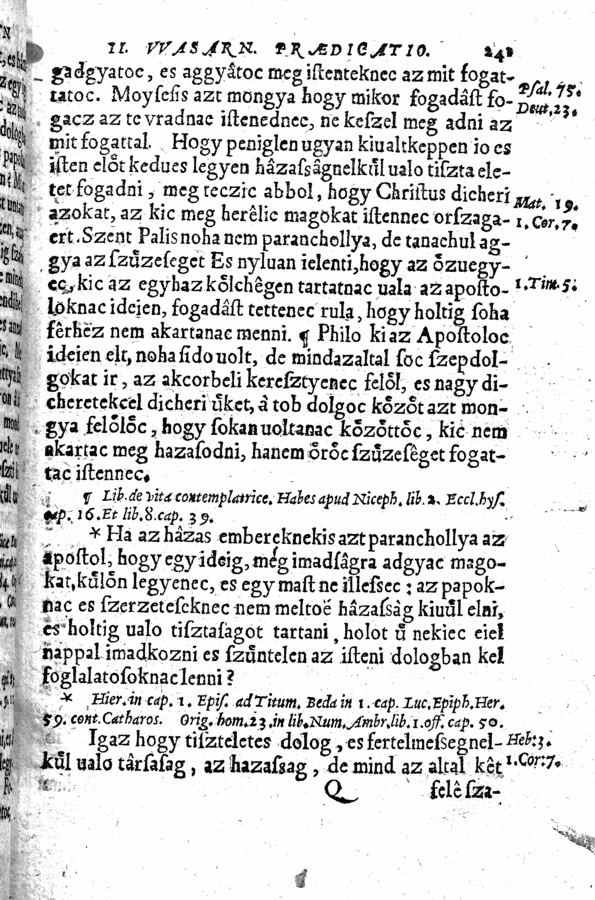 II. VVASARN. PRÆDICATIO. 242
gadgyatoc, es aggyâtoc meg iſtenteknec az mit fogat-
tatoc. Moyſeſis azt mongya hogy mikor fogadâſt fo-
Pſal. 75.
gacz az te vradnac iſtenednec, ne keſzel meg adni az
Deut. 23.
mit fogattal. Hogy peniglen ugyan kiualtkeppen io es
iſten elo̊t kedues legyen hâzaſsâgnelkůl ualo tiſzta ele-
tet fogadni, meg teczic abbol, hogy Chriſtus dicheri
Mat. 19.
azokat, az kic meg herêlic magokat iſtennec orſzaga-
1. Cor. 7.
ert. Szent Palis noha nem paranchollya, de tanachul ag-
gya az ſzůzeſeget Es nyluan ielenti, hogy az o̊zuegy-
ec, kic az egyhaz ko̊lchêgen tartatnac uala az apoſto-
1. Tim. 5.
loknac ideien, fogadâſt tettenec rula, hogy holtig ſoha
fêrhèz nem akartanac menni. ¶ Philo ki az Apoſtoloc
ideien elt, noha ſido uolt, de mindazaltal ſoc ſzep dol-
gokat ir, az akcorbeli kereſztyenec felo̊l, es nagy di-
cheretekcel dicheri ůket, à tob dolgoc ko̊zo̊t azt mon-
gya felo̊lo̊c, hogy ſokan uoltanac ko̊zo̊tto̊c, kic nem
akartac meg hazaſodni, hanem o̊ro̊c ſzůzeſêget fogat-
tac iſtennec.
¶ Lib. de vita contemplatrice. Habes apud Niceph. lib. 2. Eccl. hyſ.
cap. 16. Et lib. 8. cap. 39.
* Ha az hâzas embereknekis azt paranchollya az
apoſtol, hogy egy ideig, még imadſâgra adgyac mago-
kat, kůlo̊n legyenec, es egy maſt ne illeſsec : az papok-
nac es ſzerzeteſeknec nem meltoë hâzaſsàg kiuůl elni,
es holtig ualo tiſztaſagot tartani, holot ů nekiec eiel
nappal imadkozni es ſzůntelen az iſteni dologban kel
foglalatoſoknac lenni ?
* Hier. in cap. 1. Epiſ. ad Titum. Beda in 1. cap. Luc. Epiph. Her.
59. cont. Catharos. Orig. hom. 23. in lib. Num. Ambr. lib. 1. off. cap. 50.
Igaz hogy tiſzteletes dolog, es fertelmeſsegnel-
Heb: 3.
kůl ualo târſaſag, az hazaſsag, de mind az altal kêt
1. Cor: 7.
Q felê ſza-